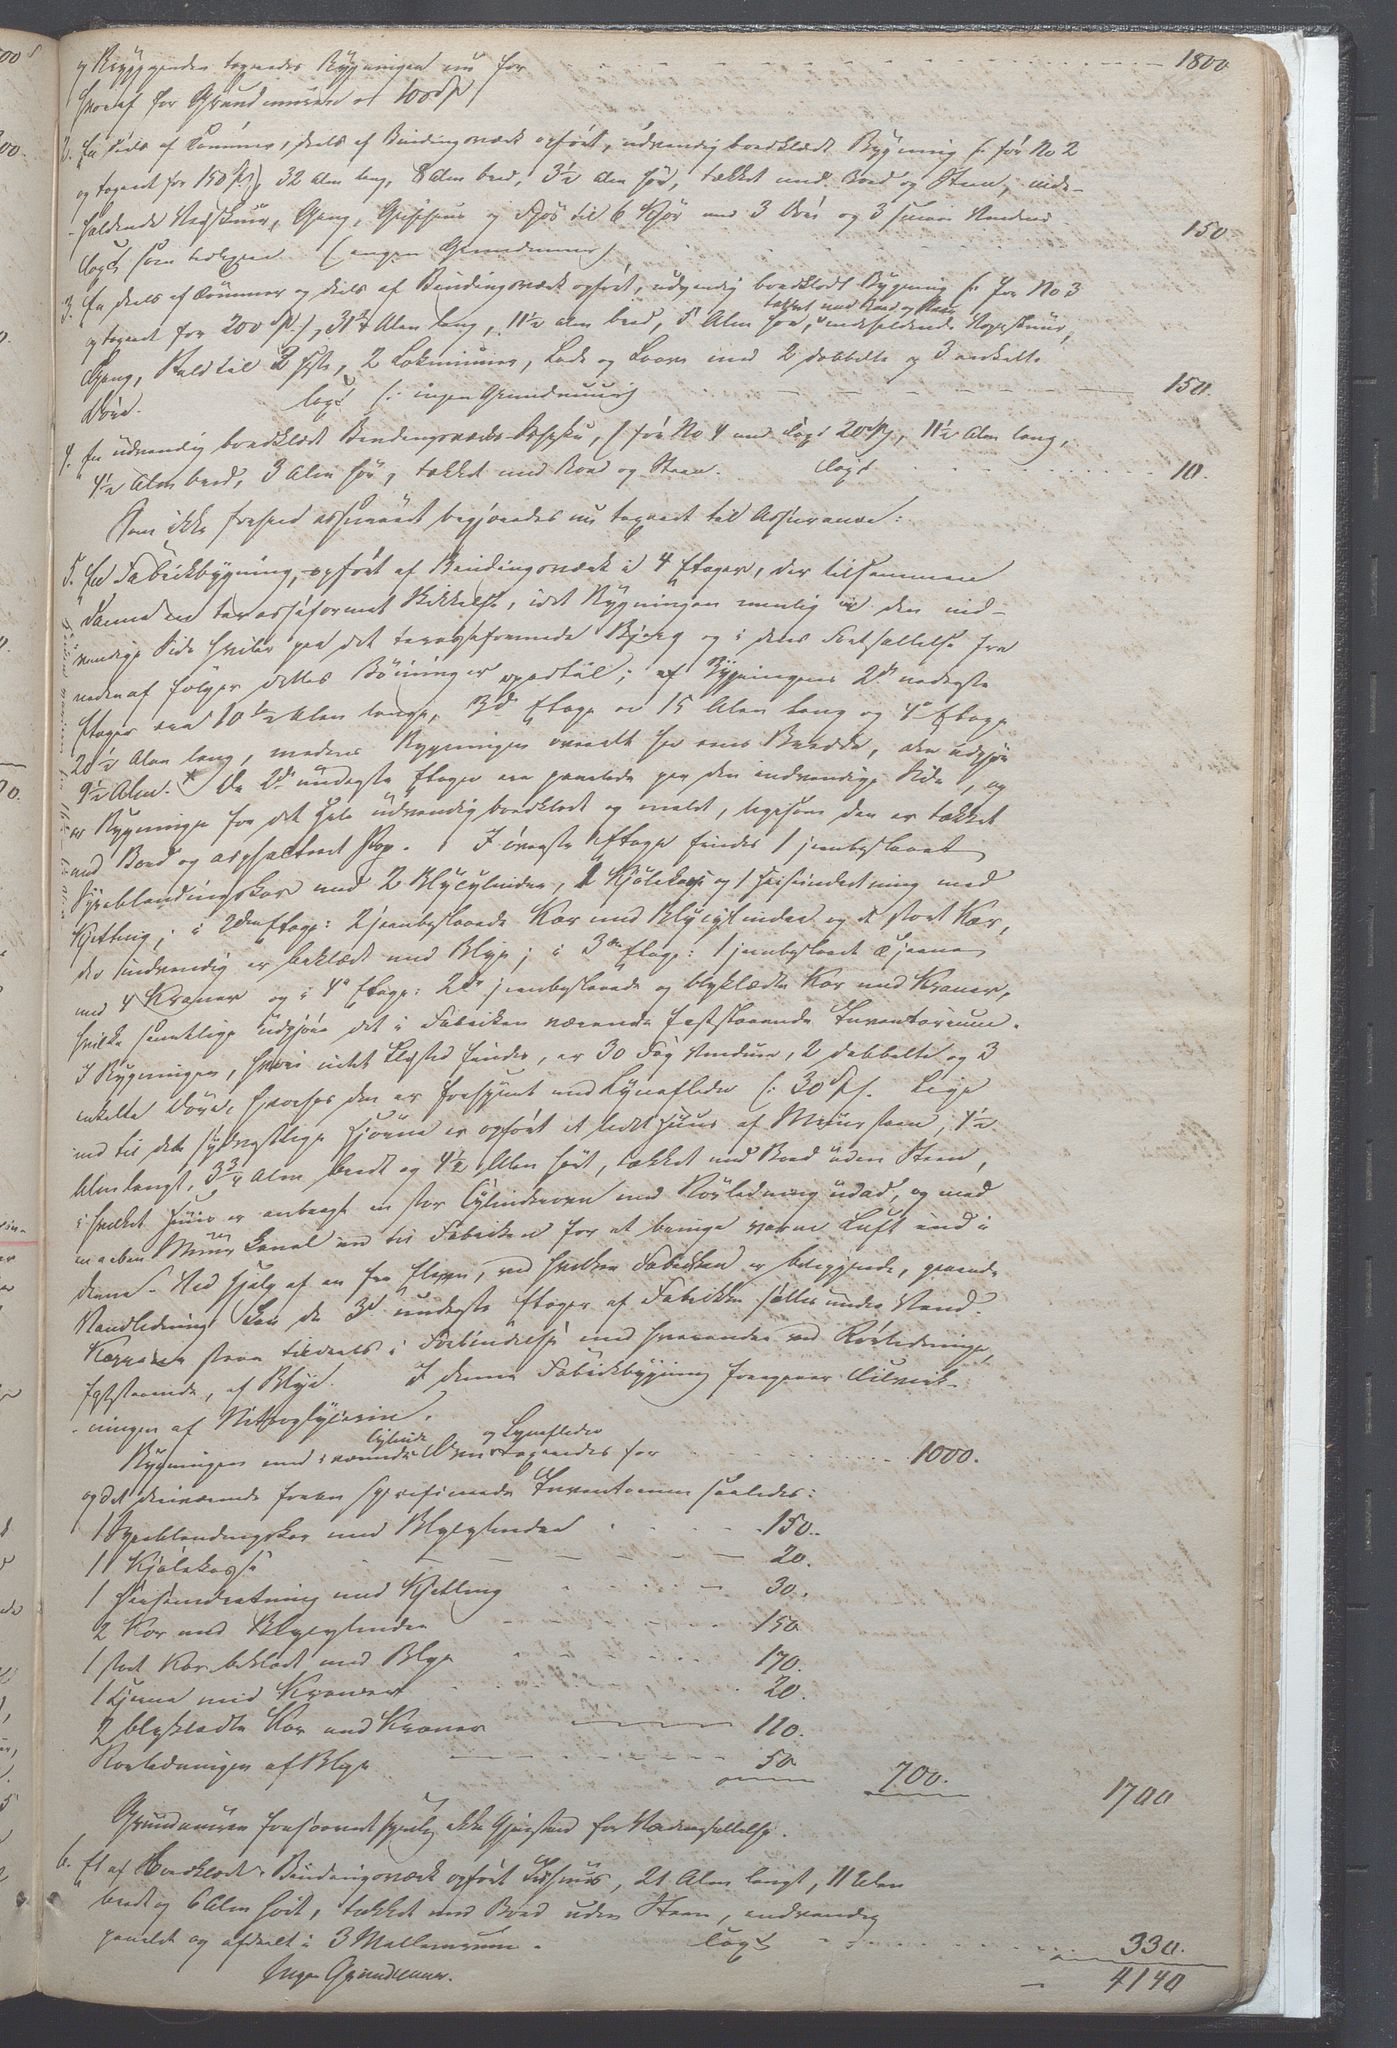 og Bryggenden taxeres Bygningen nu for 1800
hvoraf for Grundmuren 100 Sp
2. En deels af Tømmer, deels af Bindingsværk opført, udvendig bordklædt Bygning (: før No 2
og taxeret for 150 Sp), 32 Alen lang, 8 Alen bred, 3½ Alen høi, tækket med Bord og Steen, inde-
-holdende Vedskuur, Gang, Grisehuus og Fjøs til 6 Kjør med 3 Døre og 3 smaae Vinduer
Taxt som tidligere (ingen Grundmuur) 150
3. En deels af Tømmer og deels af Bindingsværk opført, udvendig bordklædt Bygning (: før No 3
tækket med Bord og Steen
og taxeret for 200 Sp:), 31¾ Alen lang, 11½ Alen bred, 5 Alen høi, indeholdende Vognskuur,
Gang, Stald til 2 Heste, 2 Lokummer, Lade og Loove med 2 dobbelte og 3 enkelte
Døre. Taxt (: ingen Grundmuur) 150.
4. En udvendig bordklædt Bindingsværks , (før No 4 med Taxt 20 Sp), 11½ Alen lang,
4½ Alen bred, 3 Alen høi, tækket med Bord og Steen. Taxt 10.
Som ikke forhen assureret begjæredes nu taxeret til Assurance:
5. En Fabrikbygning, opført af Bindingsværk i 4 Etager, der tilsammen
danne en terasseformet Skikkelse, idet Bygningen nemlig paa den ind-
vendige Side hviler paa det terasseformede Bjerg og i dens Fortsættelse fra
nedenaf følger dettes Bøininger opadtil; af Bygningens 2de nederste
Etager ere 10½ Alen lange, 3die Etage er 15 Alen lang og 4de Etage
20½ Alen lang, medens Bygningen overalt har eens Bredde, som udgjør
9½ Alen. * De 2de underste Etager ere panelede paa den indvendige Side, og
er Bygningen for det Hele udvendig bordklædt og malet, ligesom den er tækket
med Bord og asphalteret Pap. I øverste Etage findes 1 jernbeslaaet
Syreblandingskar med 2 Blycylindre, 1 Kjølekasse og 1 Heiseindretning med
Kjetting; i 2den Etage: 2 jernbeslaaede Kar med Blycylindre og et stort Kar,
der indvendig er beklædt med Bly; i 3die Etage: 1 jernbeslaaet Tjerne
med 4 Kraner og i 4de Etage: 2de jernbeslaaede og blyklædte Kar med Kraner,
hvilke samtlige udgjøre det i Fabriken værende faststaaende Inventarium.
I Bygningen, hvori intet Ildsted findes, er 30 Fag Vinduer, 2 dobbelte og 3
enkelte Døre, hvorhos den er forsynet med Lynafleder (: 30 Sp). Lige
ind til det sydvestlige Hjørne er opført et lidet Huus af Muursteen, 4½
Alen langt, 3¾ Alen bredt og 4½ Alen høit, tækket med Bord uden Steen,
i hvilket Huus er anbragt en stor Cylinderovn med Rørledning udad, og med
en aaben Muur Canal ind til Fabriken for at bringe varm Luft ind i
denne. Ved Hjælp af en fra Elven, ved hvilken Fabriken er beliggende, gaaende
Vandledning kan de 3de underste Etager af Fabriken sættes under Vand.
Karrene staae tildeels i Forbindelse med hverandre ved Rørledninger,
faststaaende, af Bly. I denne Fabrikbygning foregaaer Tilvirk-
-ningen af Nitroglycerin.
Cylinder og Lynafleder
Bygningen med værende Ovn taxeredes for 1000.
og det deriværende foran specificerede Inventarium saaledes:
1 Syreblandingskar med Blycylindre 150.
1 Kjølekasse 20.
1 Heiseindretning med Kjetting 30.
2 Kar med Blycylindre 150
1 stort Kar beklædt med Bly 170.
1 Tjerne med Kraner 20.
2 blyklædte Kar med Kraner 110.
Rørledningen af Bly 50 700. 1700
Grundmuren forsaavidt synlig ikke Gjenstand for Værdiansættelse.
6. Et af bordklædt Bindingsværk opført Huus, 21 Alen langt, 11 Alen
bredt og 6 Alen høit, tækket med Bord uden Steen, indvendig
panelet og afdeelt i 3 Mellemrum. Taxt 330.
Ingen Grundmuur. 4140